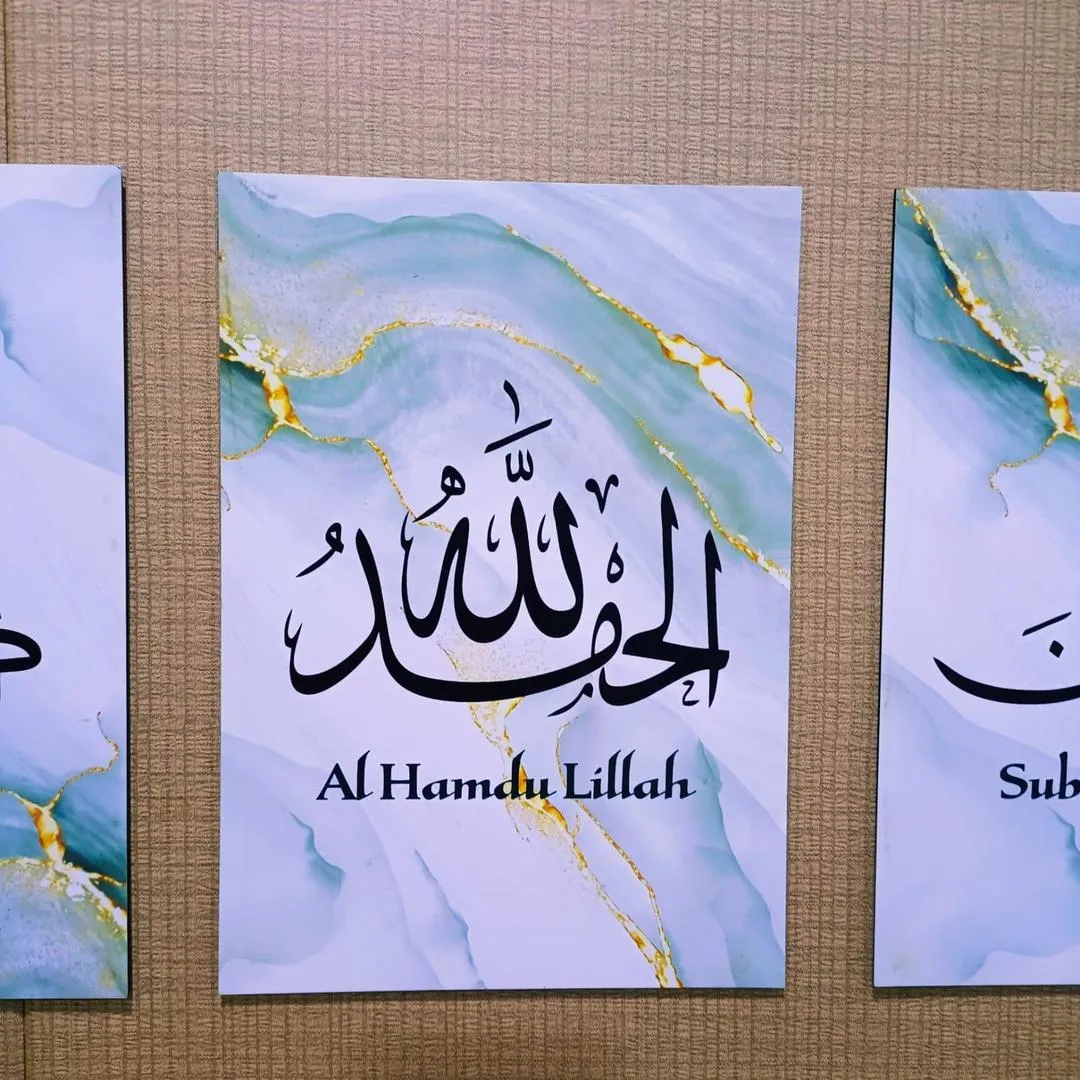 الحمدُ لله
Al Hamdu Lillah
Sub